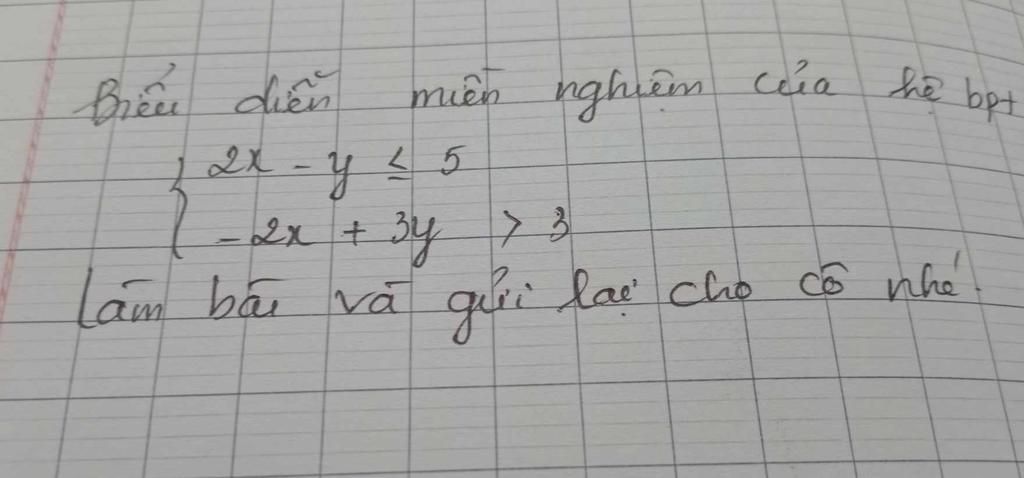 Biểu diễn miền nghiệm của hệ bpt
2x - y ≤ 5
-2x + 3y > 3
Làm bài và gửi lại cho cô nhé.